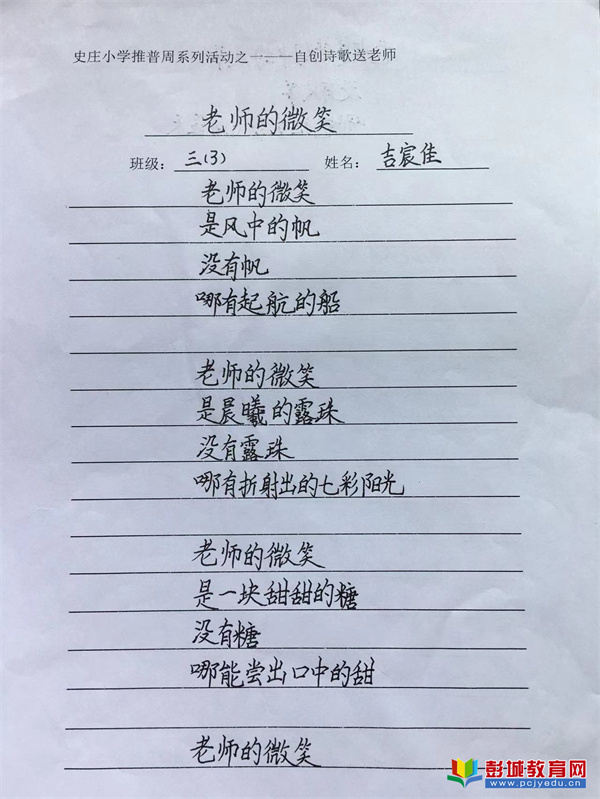 史庄小学推普周系列活动之一——自创诗歌送老师
老师的微笑
班级：三(3) 姓名：吉宸佳
老师的微笑
是风中的帆
没有帆
哪有起航的船
老师的微笑
是晨曦的露珠
没有露珠
哪有折射出的七彩阳光
老师的微笑
是一块甜甜的糖
没有糖
哪能尝出口中的甜
老师的微笑
彭城教育网
www.pcjyedu.cn